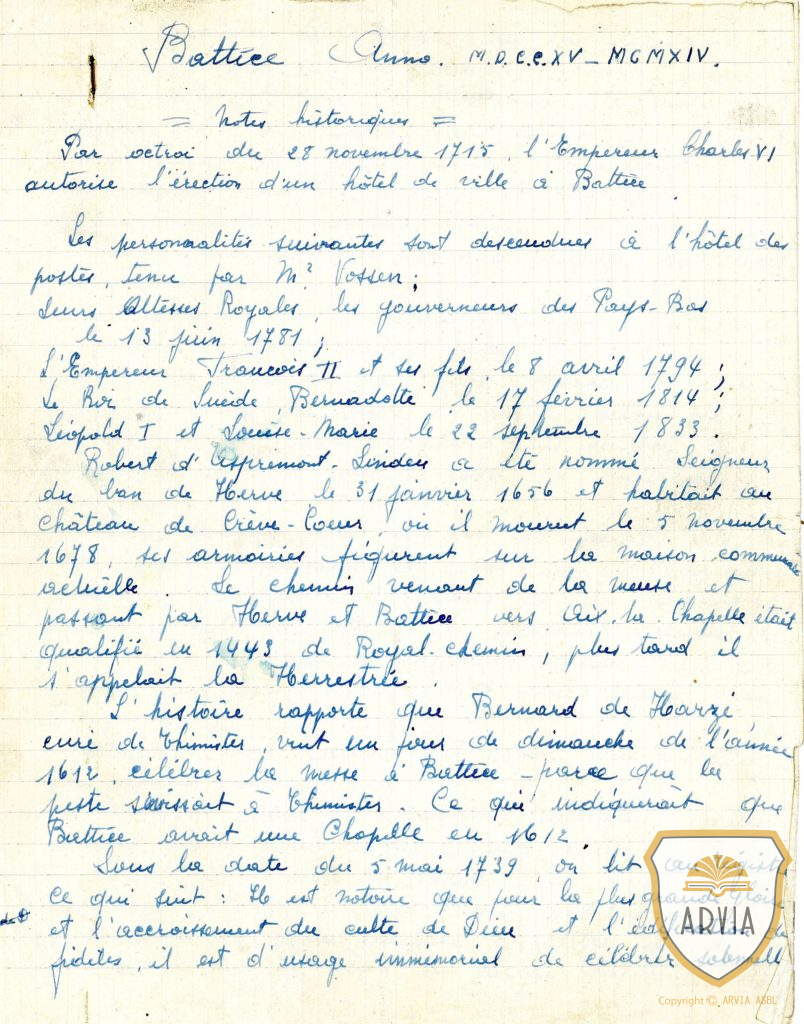 Battice Anno. M.D.C.C.XV – MCMXIV.
= Notes historiques =
Par octroi du 28 novembre 1715, l'Empereur Charles VI
autorise l'érection d'un hôtel de ville à Battice
Les personnalités suivantes sont descendues à l'hôtel des
postes, tenu par Mr Vossen ;
Leurs Altesses Royales, les gouverneurs des Pays-Bas
le 13 juin 1781 ;
L'Empereur Francois II et ses fils, le 8 avril 1794 ;
Le Roi de Suède, Bernadotte, le 17 février 1814 ;
Léopold I et Louise-Marie le 22 septembre 1833.
Robert d'Aspremont-Linden a été nommé Seigneur
du ban de Herve le 31 janvier 1656 et habitait au
Château de Crève-Coeur, où il mourut le 5 novembre
1678, ses armoiries figurent sur la maison communale
actuelle. Le chemin venant de la meuse et
passant par Herve et Battice vers Aix-la-Chapelle était
qualifié en 1443 de Royal-chemin, plus tard il
s'appelait la Herrestrée.
L'histoire rapporte que Bernard de Harzé,
curé de Thimister, vint un jour de dimanche de l'année
1612, célébrer la messe à Battice – parce que la
peste sévissait à Thimister. Ce qui indiquerait que
Battice avait une Chapelle en 1612.
Sous la date du 5 mai 1739, on lit au
ce qui suit : Il est notoire que pour la plus grande gloire
et l'accroissement du culte de Dieu et l'édification
fidèles, il est d'usage immémorial de célébrer
ARVIA
Copyright © ARVIA ASBL